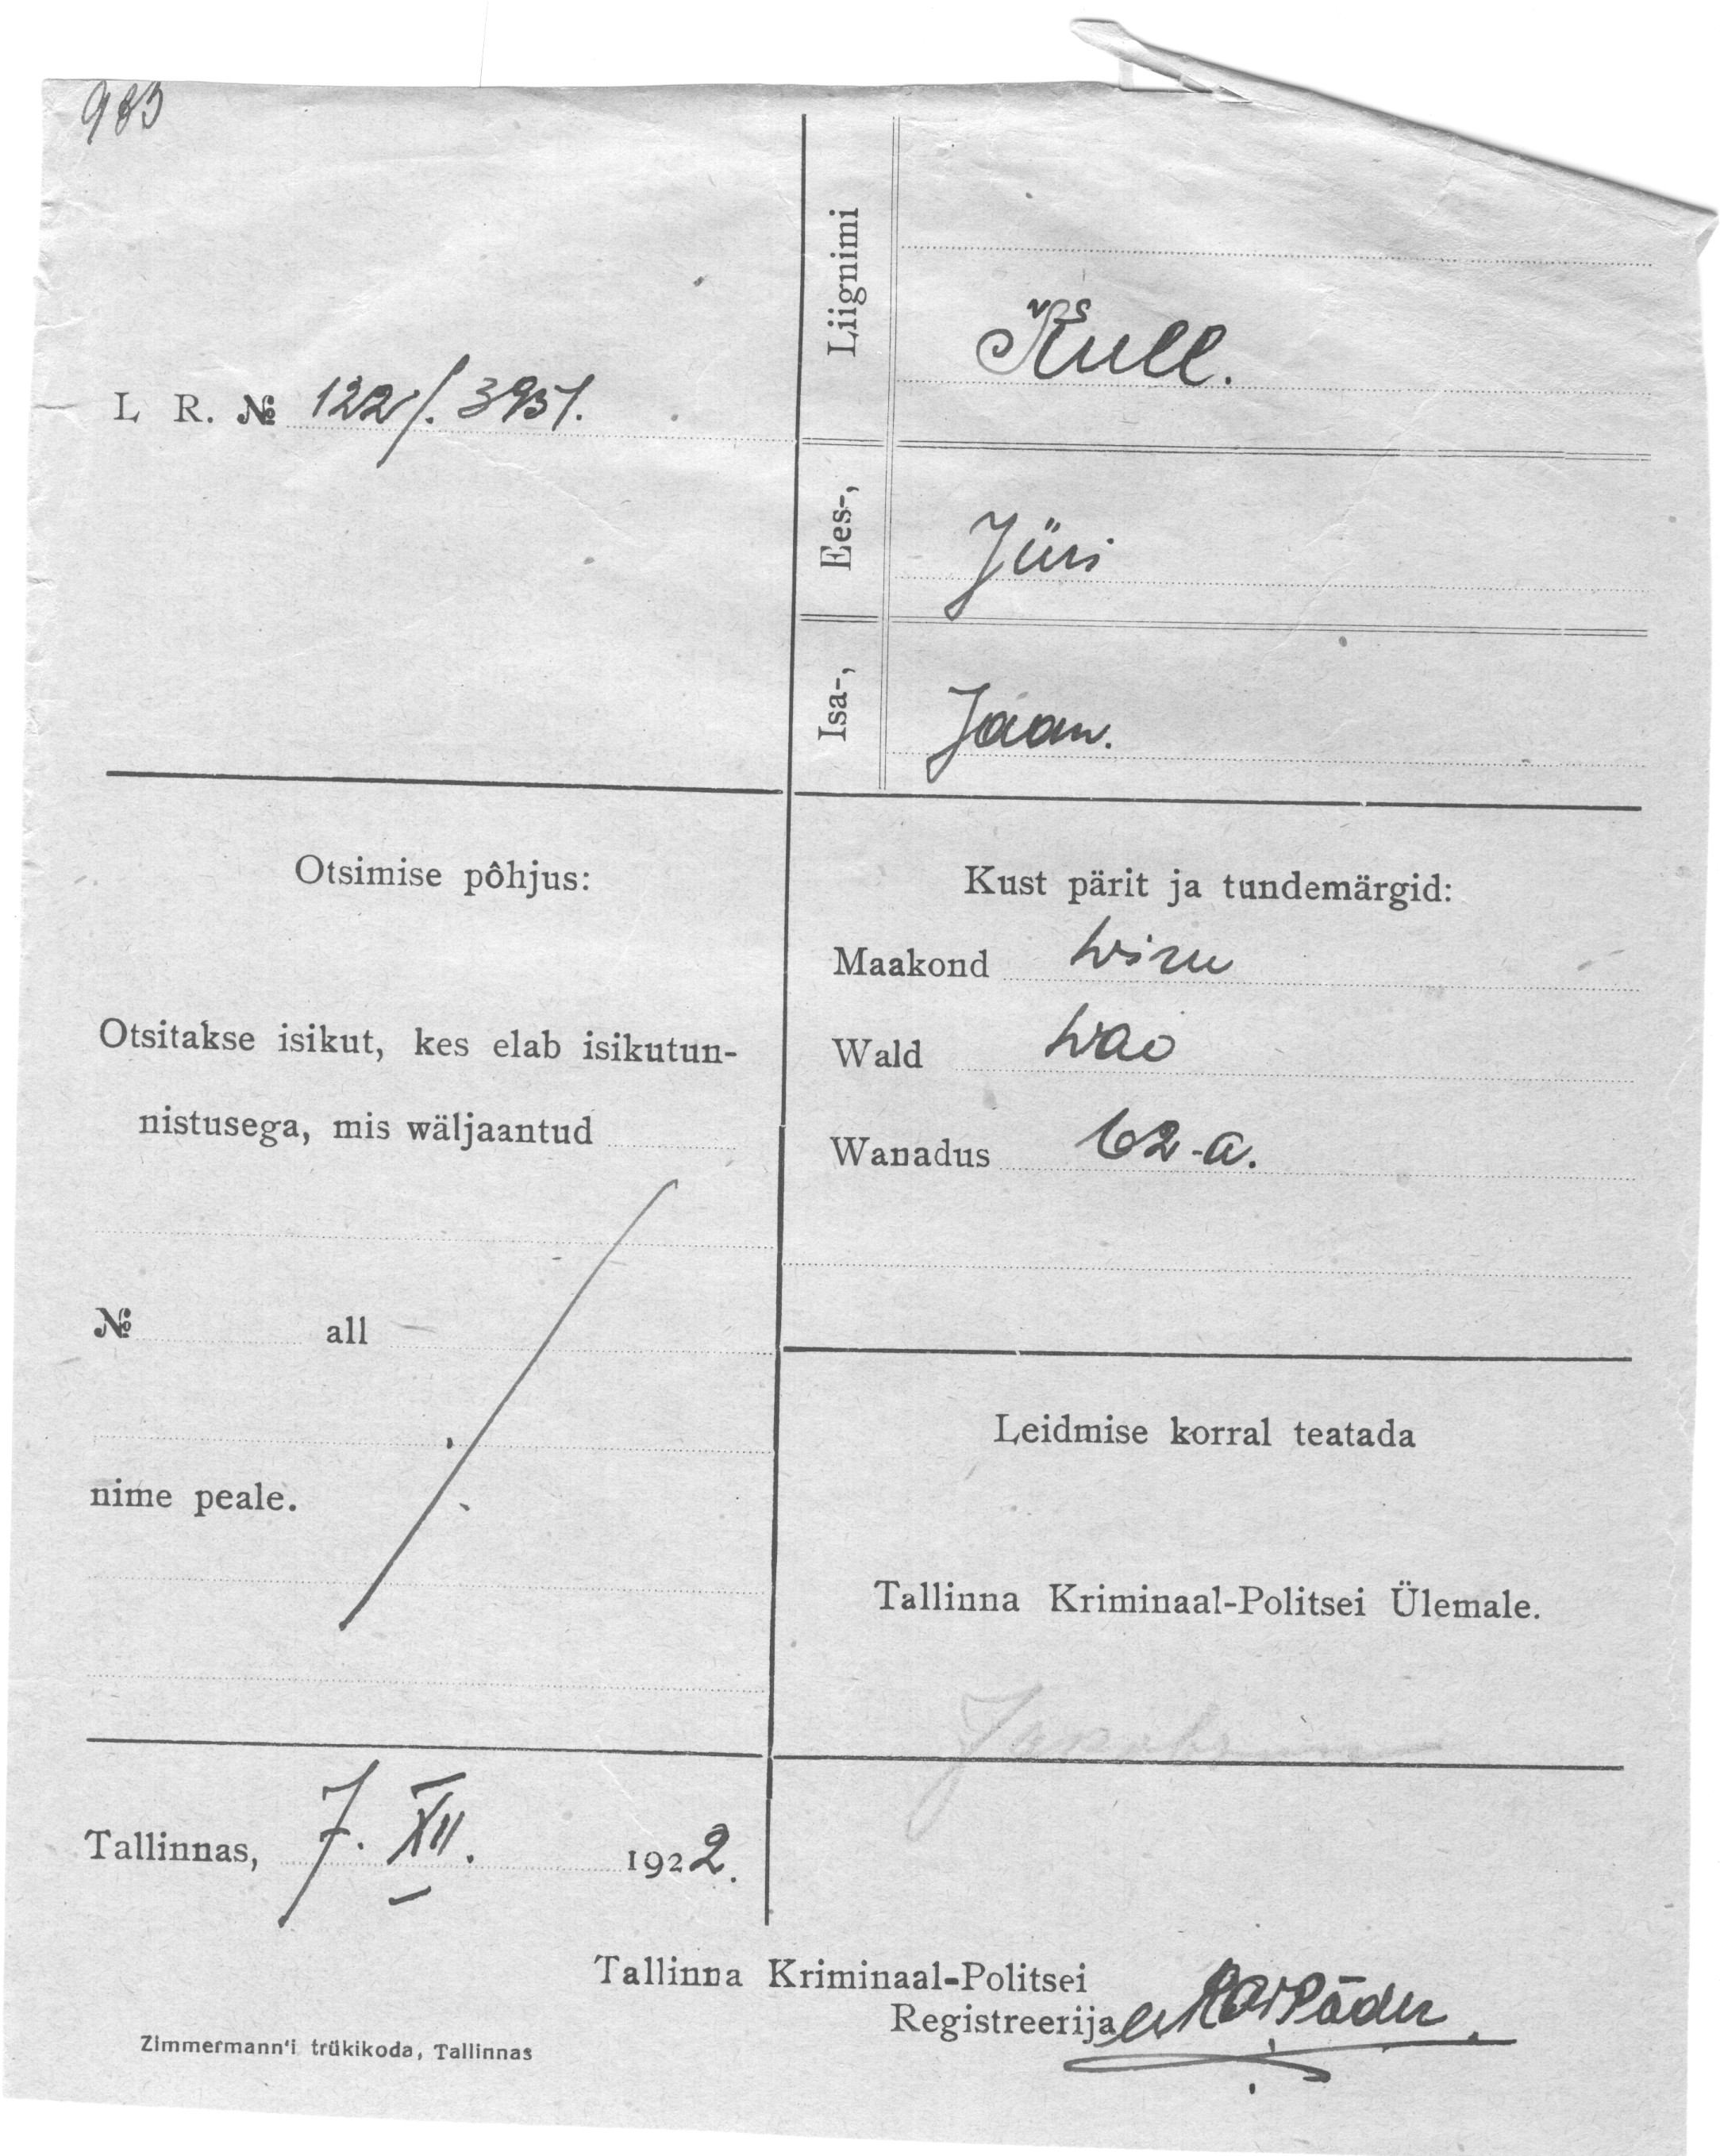 983
L R. № 122/. 3951.
Liignimi
Kull.
Ees-,
Jüri
Isa-,
Jaan.
Otsimise põhjus:
Otsitakse isikut, kes elab isikutun-
nistusega, mis wäljaantud
№ all
nime peale.
Kust pärit ja tundemärgid:
Maakond Wiru
Wald Wao
Wanadus 62-a.
Leidmise korral teatada
Tallinna Kriminaal-Politsei Ülemale.
Tallinnas, 7. XII. 1922.
Tallinna Kriminaal-Politsei
Registreerija
Zimmermann'i trükikoda, Tallinnas